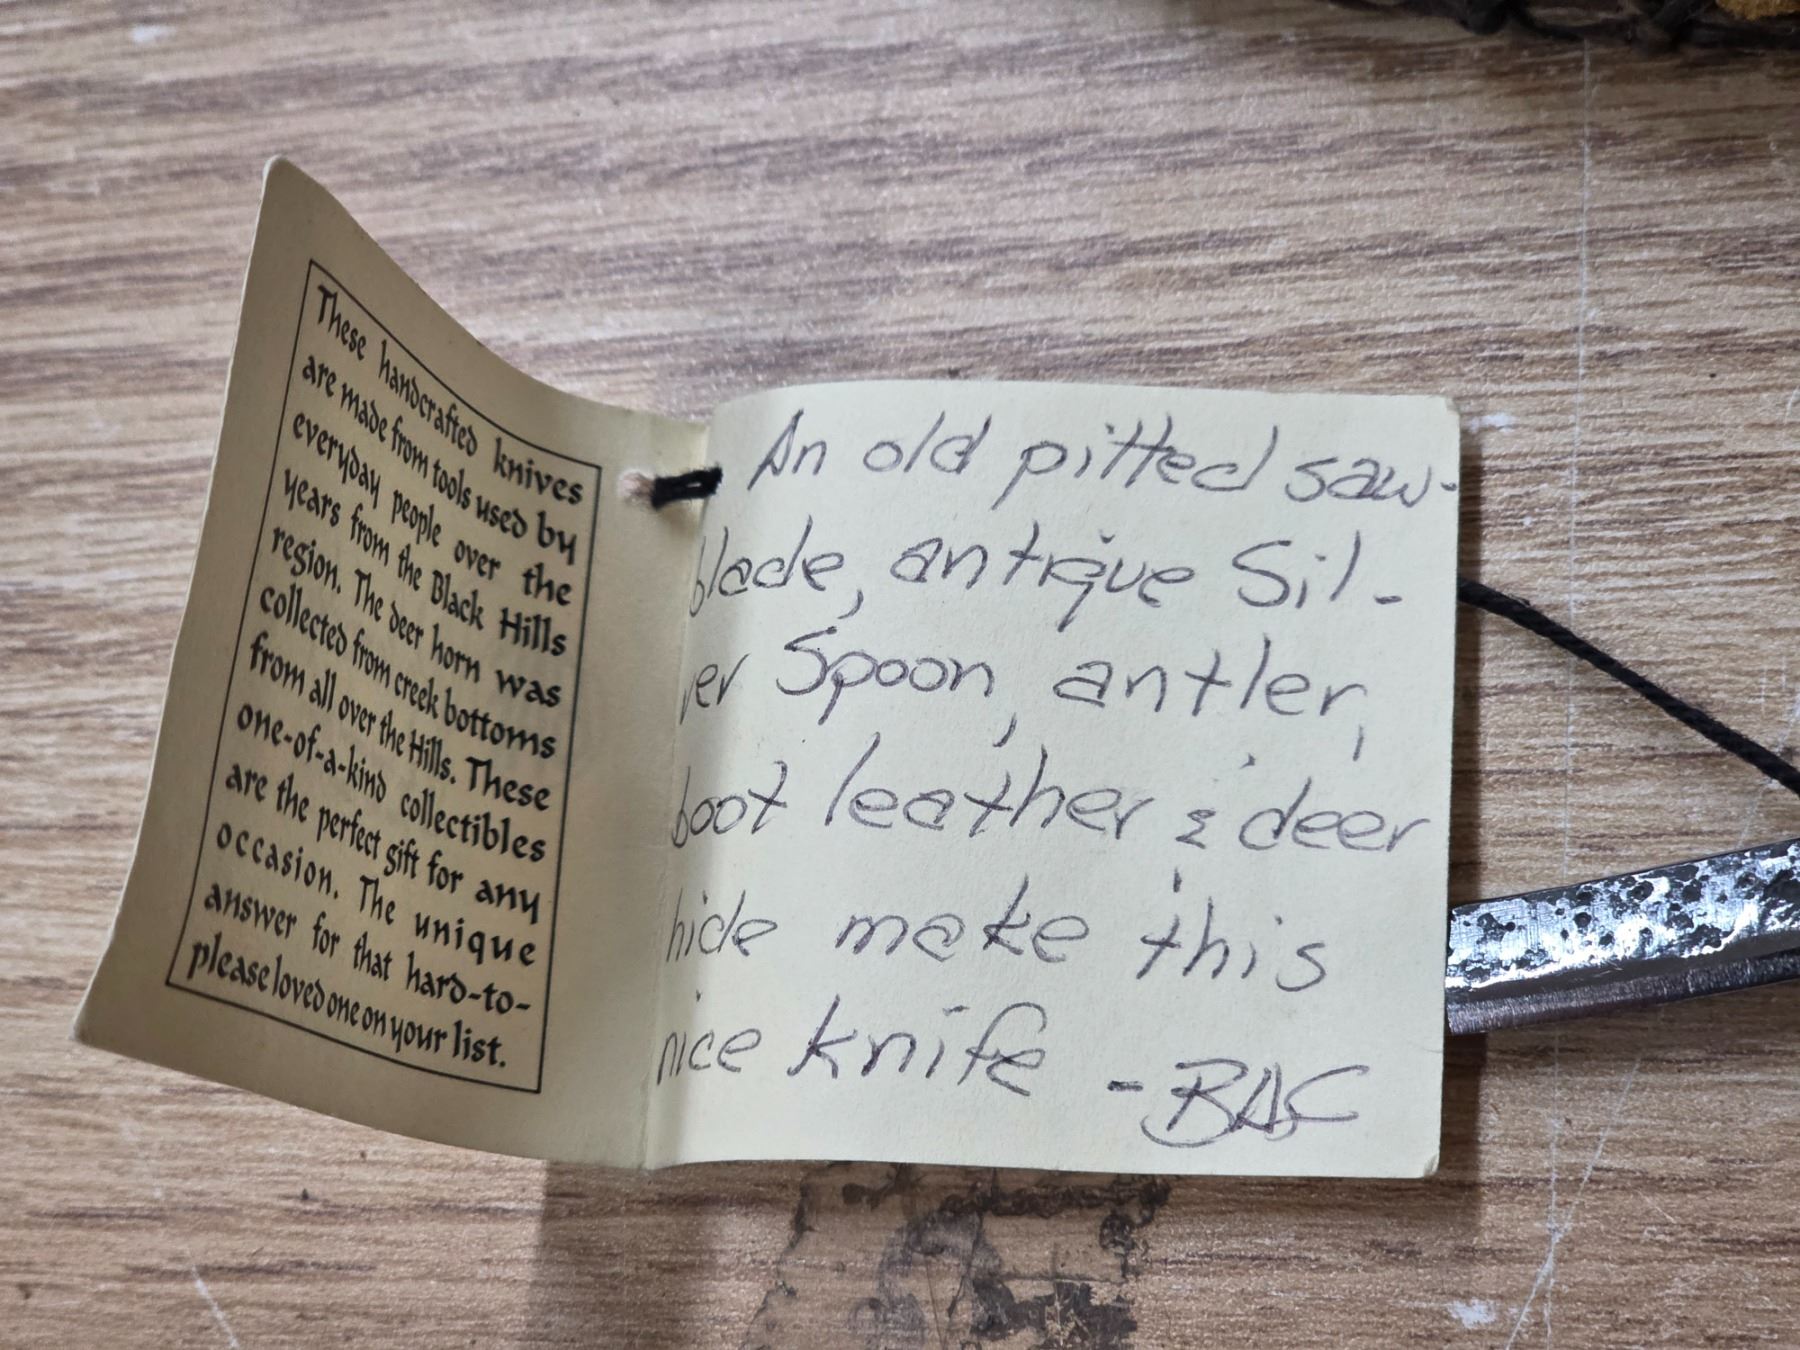 These handcrafted knives
are made from tools used by
everyday people over the
years from the Black Hills
region. The deer horn was
collected from creek bottoms
from all over the Hills. These
one-of-a-kind collectibles
are the perfect gift for any
occasion. The unique
answer for that hard-to-
please loved one on your list.
An old pitted saw-
blade, antique Sil-
ver Spoon, antler,
boot leather & deer
hide make this
nice knife - BAC